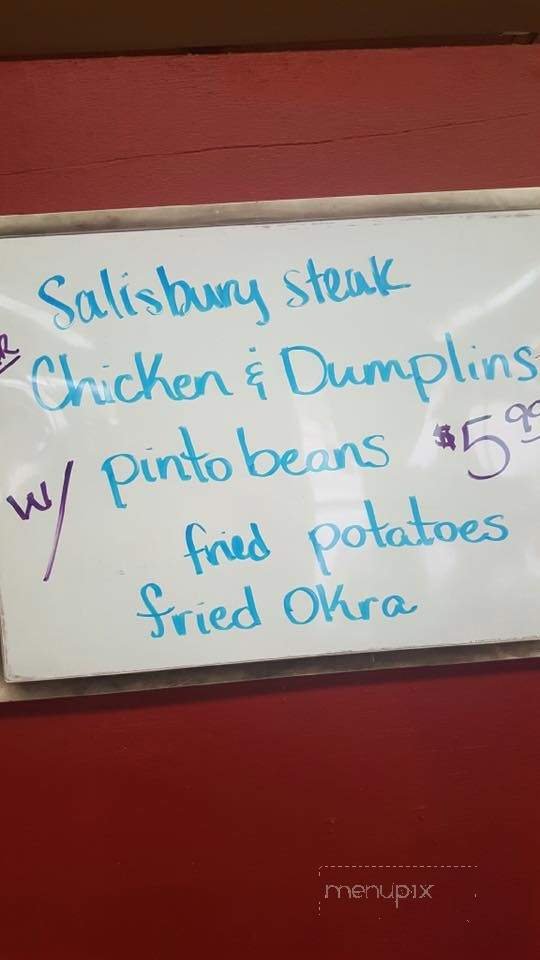 Salisbury steak
Chicken & Dumplins
w/ pinto beans $5.99
fried potatoes
fried Okra
menupix